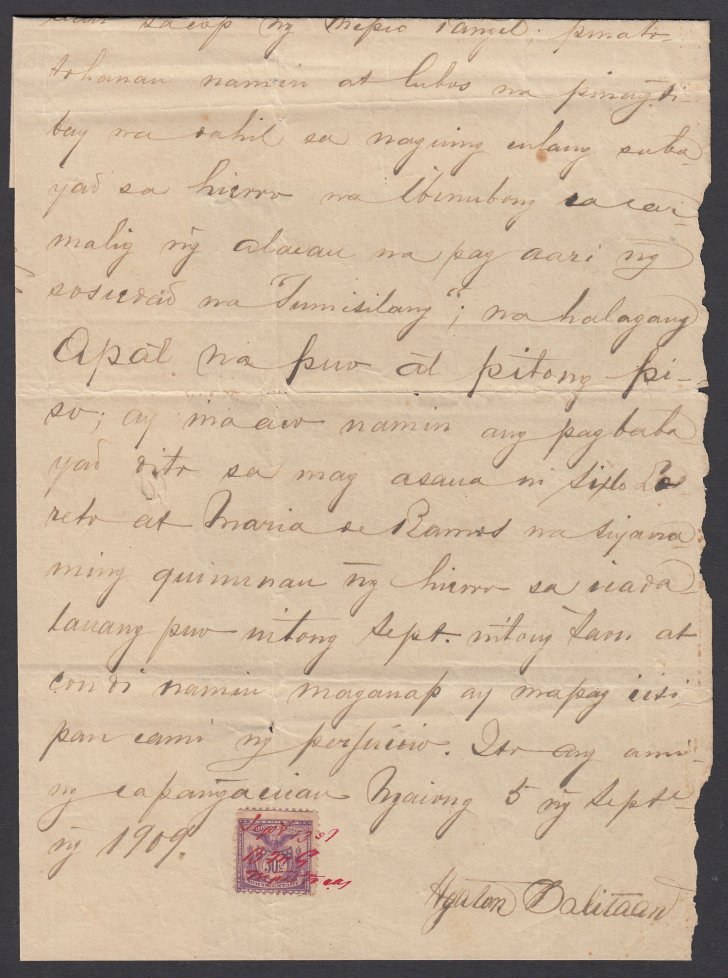 sacop ng
tohanan namin at lubos na pinagti
bay na dahil sa naguing culang suba
yad sa hierro na ibinubong sa ca
malig ng alacan na pag aari ng
sosiedad na "Sumisilang"; na halagang
Apat na puo at pitong pi-
so; ay inaaco namin ang pagbaba
yad dito sa mag asaua ni Sixto Lo
reto at Maria de Ramos na siyana
ming quinunan ng hierro sa icada-
lauang puo nitong Sept. nitong taon at
condi namin maganap ay mapag iisi
pan cami ng perjuicio. Ito ang ami
ng capangacuan Ngaiong 5 ng Septe
ng 1909.
Agaton Balitaan